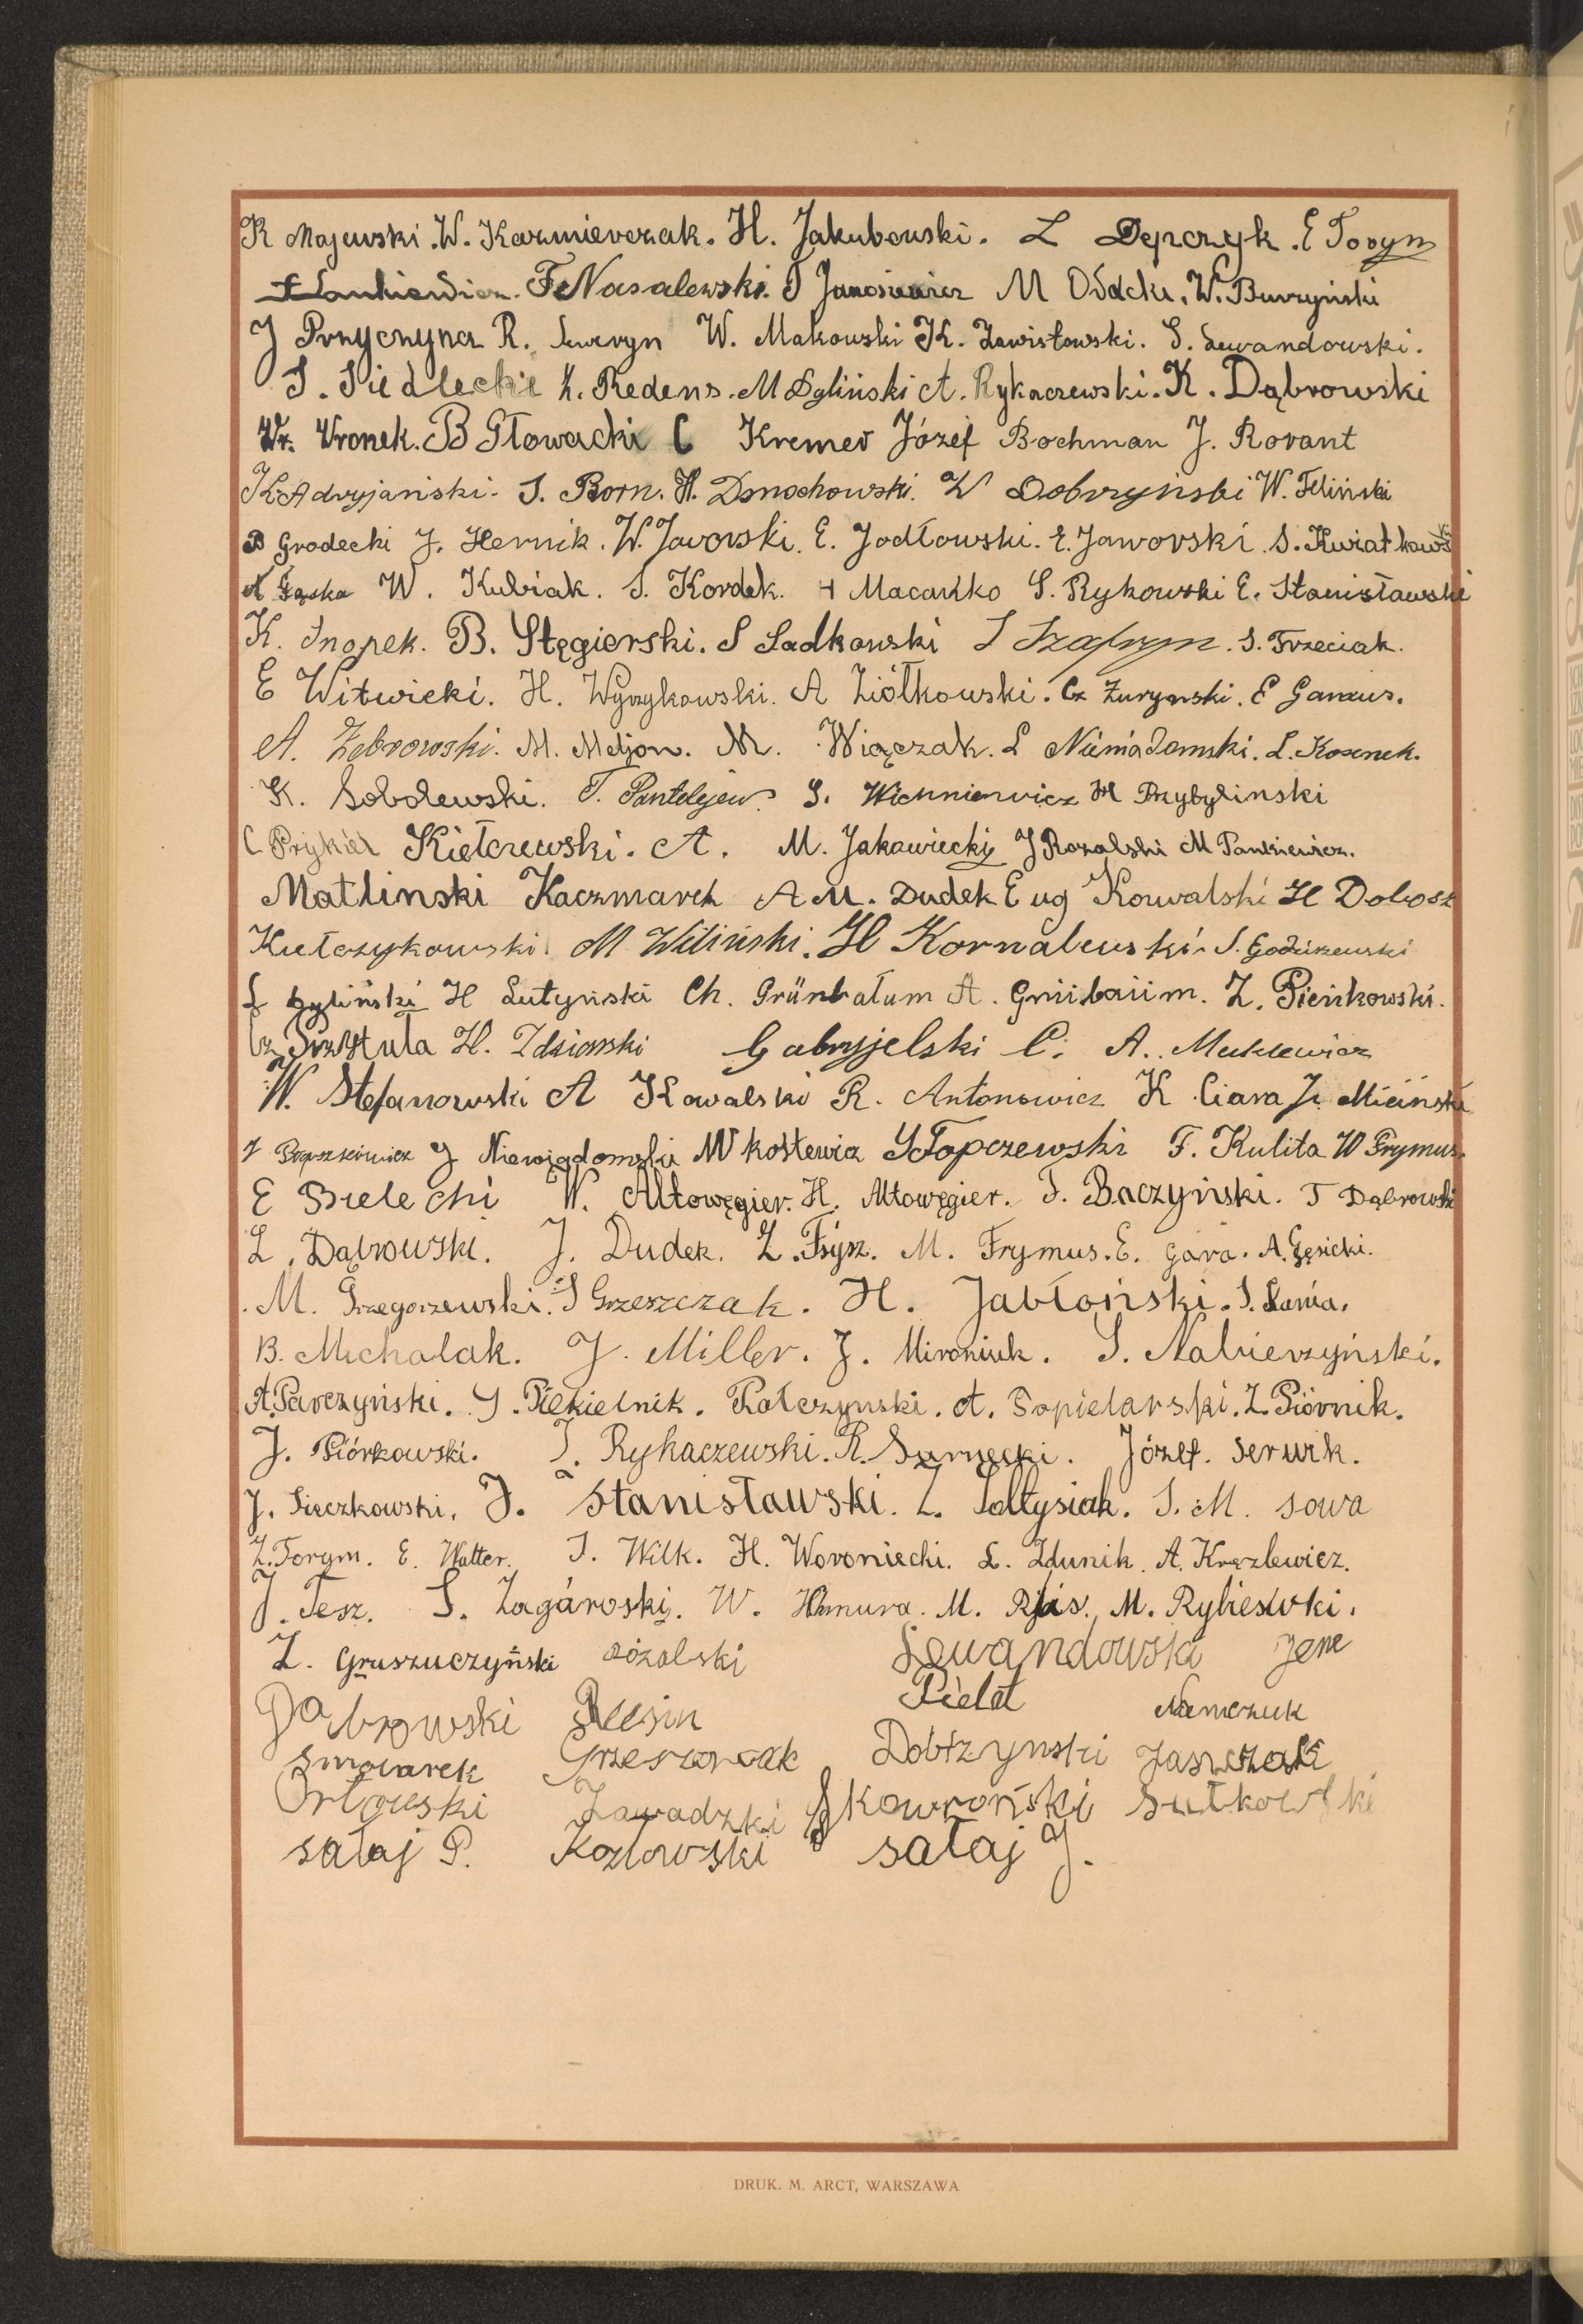 R Majewski. W. Kazmierczak. H. Jakubowski. L Depczyk. E Torym
F. Nasalewski. T Janosiewicz M W. Burzyński
J Przyczyna R. Seweryn W. Makowski K. Zawistowski. S. Lewandowski.
S. Siedlecki K. Redens. M Dyliński A. Rykaczewski. K. Dąbrowski
Wr. Wronek. B Głowacki C Kremer Józef Bochman J. Rorant
K Adryjański. S. Born. H. Domochowski. W Dobrzyński W. Filiński
B Grodecki J. Hernik. W. Jaworski. E. Jodłowski. E. Jaworski. S. Kwiatkowski
A Gąska W. Kubiak. S. Kordek. H Macarkko S. Rykowski E. Stanisławski
K. Snopek. B. Stęgierski. S Sadkowski S Szafrym. S. Trzeciak.
E Witwicki. H. Wyrzykowski. A Ziółkowski. Cz Zurynski. E Ganzus.
A. Zebrowski. M. Meljon. M. Wiązczak. L Niemiadomski. L. Kosenek.
K. Sobolewski. T. Pantelejew. S. Wichniewicz H Przybylinski
C Prykiel Kiełczewski. A. M. Jakawiecki J Rozalski M Pankiewicz.
Matlinski Kaczmarek A M. Dudek Eug Kowalski H Dobosz
Kiełczykowski M Wiliński. H Kornalewski. S. Godziszewski
L Dyliński H Lutyński Ch. Grünbałum A. Gniibaiim. Z. Pieńkowski.
Cz Przystuła H. Zdziarski Gabryjelski C. A. Muklewicz
W. Stefanowski A Kowalski R. Antonowicz K Ciara J. Miciński
J Niewiądomski M Kostewicz S Topczewski F. Kulita W Frymus.
E Bielecki W. Altowęgier. H. Altowęgier. T. Baczyński. T Dąbrowski
L. Dąbrowski. J. Dudek. Z. Fiysz. M. Frymus. E. Gara. A. Gęsicki.
M. Grzegorzewski. S Grzeszczak. H. Jabłoński. S. Łania.
B. Michalak. J. Miller. J. Mironiuk. S. Nabierzyński.
A. Parczyński. S. Piekielnik. Połczynski. A. Popielarski. Z. Piórnik.
J. Piórkowski. T. Rykaczewski. R. Sarnecki. Józef. Serwik.
J. Sieczkowski. J. Stanisławski. Z. Sołtysiak. S. M. Sowa
Z. Torym. E. Walter. J. Wilk. H. Woroniecki. L. Zdunik. A. Kręzlewicz.
J. Tesz. S. Zagároski. W. Hamura. M. Ryś. M. Rybiewski.
Z. Gruszuczyński Różalski Lewandowski Jene
Dąbrowski Rusin Pielat Niemczuk
Smolarek Grzeszczak Dobrzynski Jaszczak
Orłowski Zawadzki Skowroński Sułkowski
Sałaj P. Kozłowski Sałaj J.
DRUK. M. ARCT, WARSZAWA